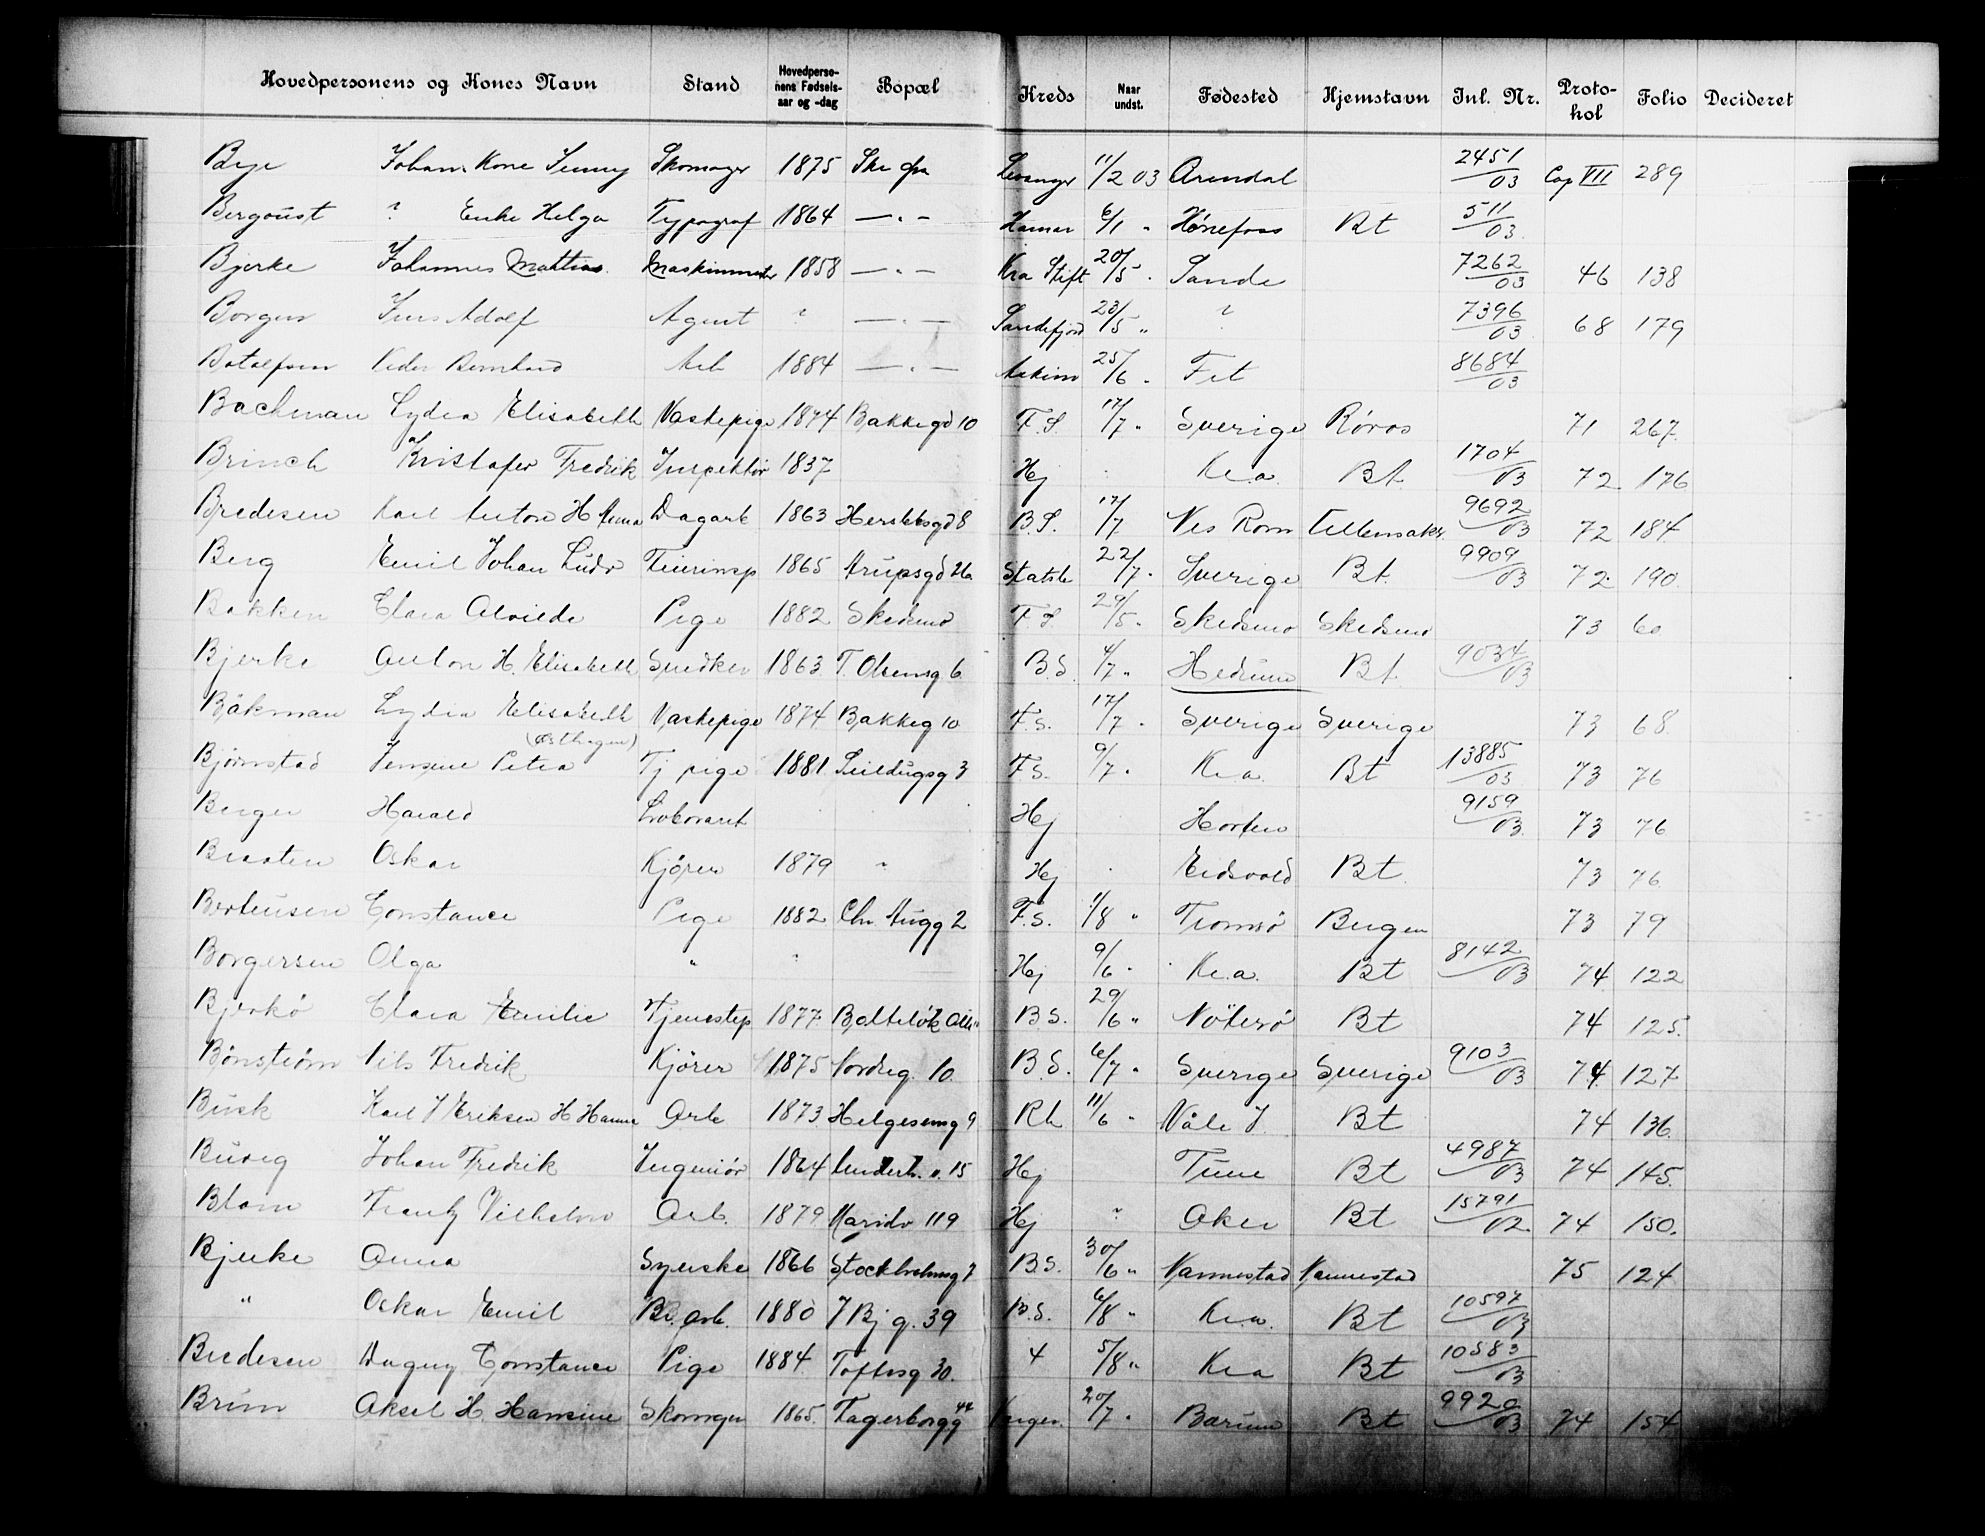 Hovedpersonens og Kones Navn Stand Hovedpersonens Fødselsaar og -dag Bopæl Kreds Naar undst. Fødested Hjemstavn Inl. Nr. Protokol Folio Decideret
Beje Johan. Kone Jenny Skomager 1875 Levanger 11/2 03 Arendal 2451/03 Cop VII 289
? Enke Helga Typograf 1864 —"— Hamar 6/1 " Hønefoss Bt 511/03
Bjerke Johannes Mathias. 1858 —"— Kra Stift 20/5 " Sande 7262/03 46 138
Borgen Jens Adolf Agent ? —"— Sandefjord 23/5 " ? 7396/03 68 179
Peder Bernhard Arb 1884 —"— Askim 25/6 " Fet 8684/03
Bachman Lydia Elisabeth Vaskepige 1874 Bakkegd 10 F.S. 17/7 " Sverige Røros 71 267
Brinch Kristofer Fredrik Inspektör 1837 Hj " Kra. Bt. 1704/03 72 176
Bredesen Karl Anton H Anna Dagarb 1863 Herslebsgd 8 B.S. 17/7 Nes Rom Ullensaker 9692/03 72 184
Berg Emil Johan Ludv 1865 Arupsgd Statsb 22/7 " Sverige Bt. 9909/03 72 190.
Bakken Clara Alvilde Pige 1882 Skedsmo F.S. 29/5 " Skedsmo Skedsmo 73 60
Bjerke Anton H. Elisabeth Snedker 1863 T. Olsensg 6 B.S. 4/7 " Hedrum Bt. 9034/03
Båkman Lydia Elisabeth Vaskepige 1874 Bakkeg 10 F.S. 17/7 " Sverige Sverige 73 68
Bjørnstad Jensine Petra (Østhagen) Tj pige 1881 Seildugsg 3 F.S. 9/7 " Kra. Bt 13885/03 73 76
Berger Harald Laborant Hj Horten 9159/03 73 76
Braaten Oskar Kjører 1879 " Hj " Eidsvold Bt 73 76
Berteusen Constance Pige 1882 Chr Augg 2 F.S. 1/8 " Tromsø Bergen 73 79
Borgersen Olga " ? Hj 9/6 " Kra. Bt 8142/03 74 122
Bjerkö Clara Emilie Tjenestep 1877 B.S. 29/6 " Nöterö Bt 74 125.
Bønstrøm Nils Fredrik Kjører 1875 Nordreg. 10 B.S. 6/7 " Sverige Sverige 9103/03 74 127
Busk Karl J Eriksen H Hanna Arb 1873 Helgesensg 9 Rh 11/6 " Våle J. Bt 74 136
Johan Fredrik Ingeniör 1864 15 Hj Tune Bt 4987/03 74 145.
Blom Frantz Vilhelm Arb. 1879 Maridv 119 Hj " Aker Bt 15791/02 74 150.
Bjerke Anna Syerske 1866 Stockholmsg 7 B.S. 30/6 " Vannestad Vannestad 75 124
" Oskar Emil Br. arb. 1880 J Bj g. 39 B.S. 6/8 " Kra. Bt 10597/03
Bredesen Dagny Constance Pige 1884 Toftesg 30. 4 5/8 " Kra Bt 10583/03
Brun Aksel H. Hansine Skomager 1865. Fagerborgg 44 20/7 " Bærum Bt 9920/03 74 154